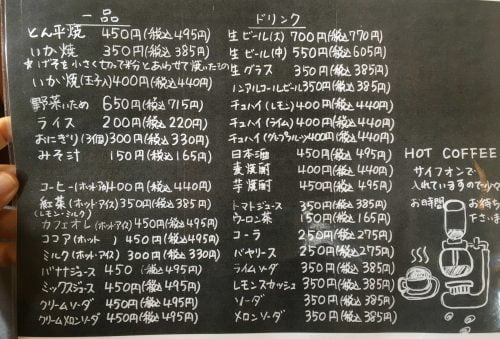 一品
とん平焼 450円(税込495円)
いか焼 350円(税込385円)
★げそを小さく切って粉とあわせて焼いたもの
いか焼(玉子入)400円(税込440円)
野菜いため 650円(税込715円)
ライス 200円(税込220円)
おにぎり(3個)300円(税込330円)
みそ汁 150円(税込165円)
コーヒー(ホット・アイス)400円(税込440円)
紅茶(ホット・アイス)350円(税込385円)
(レモン・ミルク)
カフェオレ(ホット・アイス)450円(税込495円)
ココア(ホット )450円(税込495円)
ミルク(ホット・アイス)300円(税込330円)
バナナジュース 450 (税込495円)
ミックスジュース 450円(税込495円)
クリームソーダ 450円(税込495円)
クリームメロンソーダ 450円(税込495円)
ドリンク
生ビール(大)700円(税込770円)
生ビール(中)550円(税込605円)
生グラス 350円(税込385円)
ノンアルコールビール350円(税込385円)
チュハイ(レモン)400円(税込440円)
チュハイ(ライム)400円(税込440円)
チュハイ(グレープフルーツ)400円(税込440円)
日本酒 450円(税込495円)
麦焼酎 400円(税込440円)
芋焼酎 450円(税込495円)
トマトジュース 350円(税込385円)
ウーロン茶 150円(税込165円)
コーラ 250円(税込275円)
バヤリース 250円(税込275円)
ライムソーダ 350円(税込385円)
レモンスカッシュ 350円(税込385円)
ソーダ 350円(税込385円)
メロンソーダ 350円(税込385円)
HOT COFFEE
サイフォンで
入れていますので
お時間 お待ち
下さいま